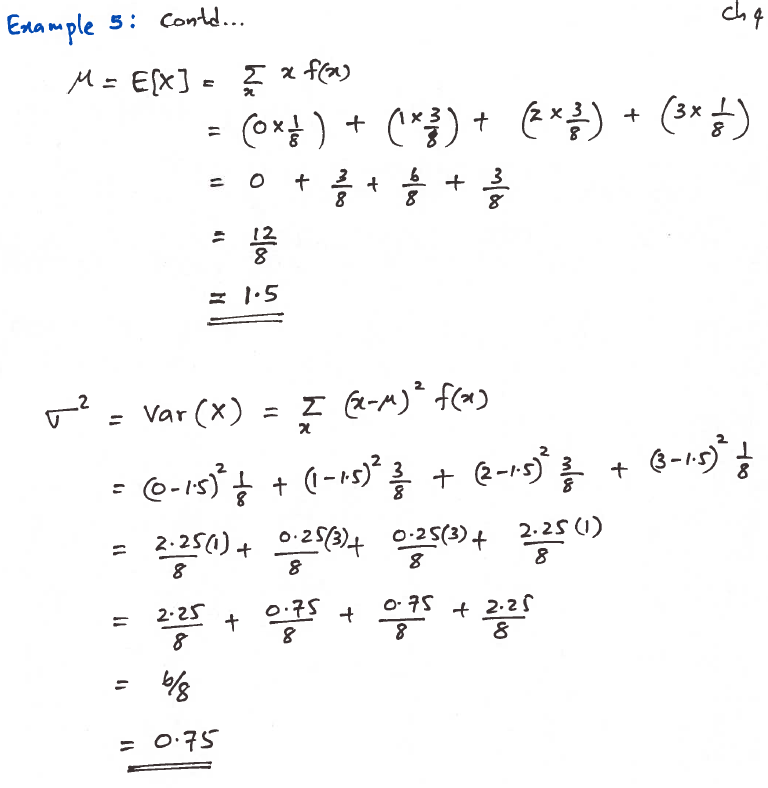 Example 5: Contd... Ch 4
μ = E[X] = Σₓ x f(x)
= (0×1/8) + (1×3/8) + (2×3/8) + (3×1/8)
= 0 + 3/8 + 6/8 + 3/8
= 12/8
= 1.5
σ² = Var(X) = Σₓ (x-μ)² f(x)
= (0-1.5)² 1/8 + (1-1.5)² 3/8 + (2-1.5)² 3/8 + (3-1.5)² 1/8
= 2.25(1)/8 + 0.25(3)/8 + 0.25(3)/8 + 2.25(1)/8
= 2.25/8 + 0.75/8 + 0.75/8 + 2.25/8
= 6/8
= 0.75